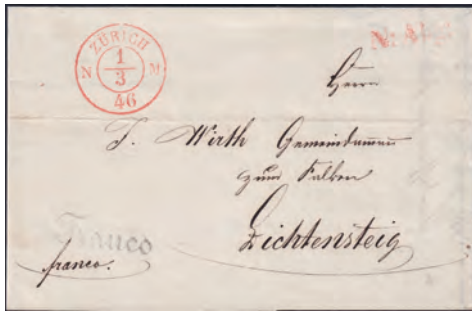 ZÜRICH
N 1/3 M
46
Herrn
J. Wirth Gemeindamman
zum Falken
Lichtensteig
Franco
franco.